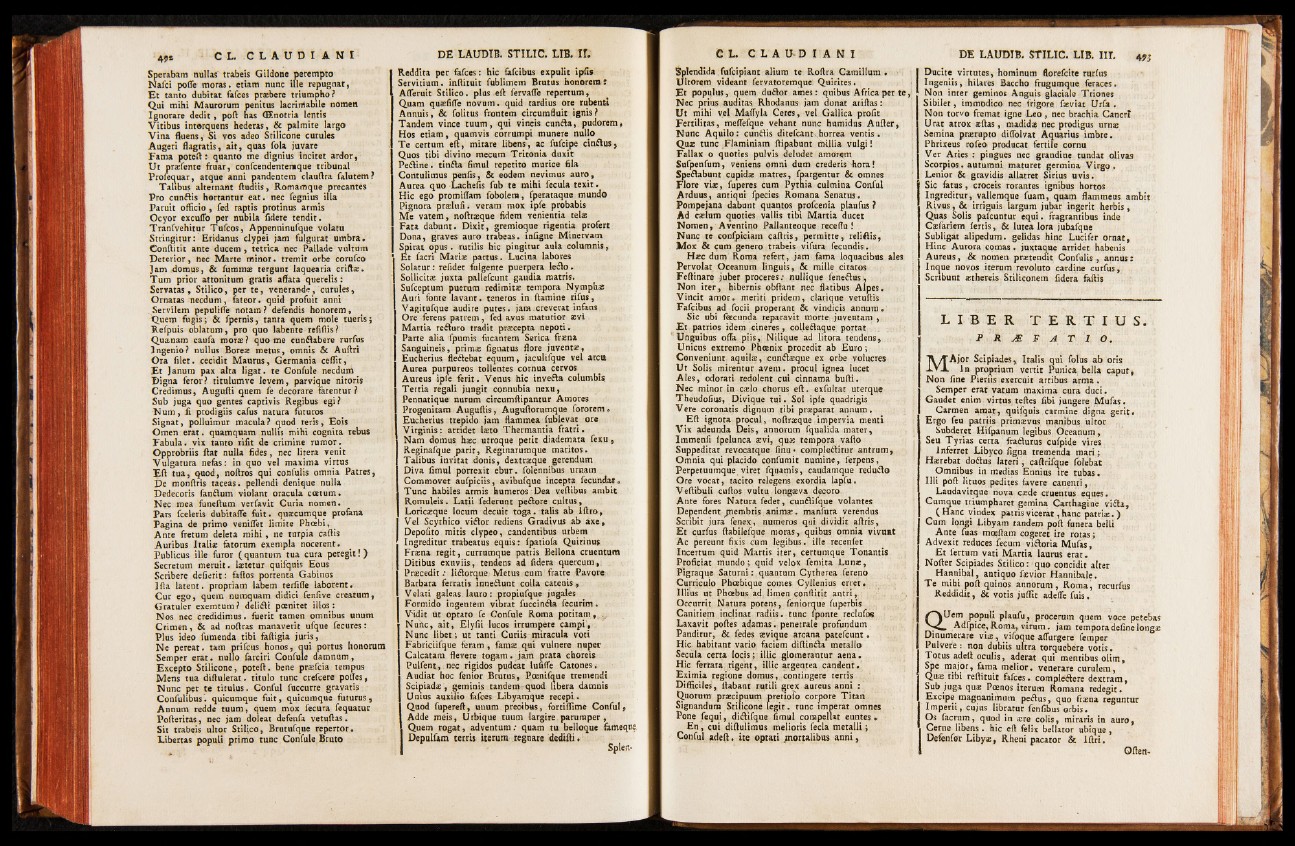 492 CL. CLAUDIANI
Sperabam nullas trabeis Gildone perempto
Naſci poſſe moras. etiam nunc ille repugnat,
Et tanto dubitat faſces præbere triumpho?
Qui mihi Maurorum penitus lacrimabile nomen
Ignorare dedit, poſt has Œnotria lentis
Vitibus intorquens hederas, & palmite largo
Vina fluens, Si vos adeo Stilicone curules
Augeri flagratis, ait, quas ſola juvare
Fama poteſt: quanto me dignius incitet ardor,
Ut præſente fruar, conſcendentemque tribunal
Proſequar, atque anni pandentem clauſtra ſalutem?
Talibus alternant ſtudiis, Romamque precantes
Pro cunctis hortantur eat. nec ſegnius illa
Paruit officio, ſed raptis protinus armis
Ocyor excuſſo per nubila ſidere tendit.
Tranſvehitur Tuſcos, Appenninuſque volatu
Stringitur: Eridanus clypei jam fulgurat umbra.
Conſtitit ante ducem, tetrica nec Pallade vultum
Deterior, nec Marte minor. tremit orbe coruſco
Jam domus, & ſummæ tergunt laquearia criſtæ.
Tum prior attonitum gratis affata querelis:
Servatas, Stilico, per te, venerande, curules,
Ornatas necdum, fateor. quid profuit anni
Servilem pepuliſſe notam? defendis honorem,
Quem fugis; & ſpernis, tanta quem mole tueris;
Reſpuis oblatum, pro quo labente reſiſtis?
Quænam cauſa moræ? quo me cunctabere rurſus
Ingenio? nullus Boreæ metus, omnis & Auſtri
Ora ſilet. cecidit Maurus, Germania ceſſit,
Et Janum pax alta ligat. te Conſule necdum
Digna feror? titulumve levem, parvique nitoris
Credimus, Auguſti quem ſe decorare fatentur?
Sub juga quo gentes captivis Regibus egi?
Num, ſi prodigiis caſus natura futuros
Signat, polluimur macula? quod teris, Eois
Omen erat. quamquam nullis mihi cognita rebus
Fabula. vix tanto riſit de crimine rumor.
Opprobriis ſtat nulla fides, nec litera venit
Vulgatura nefas: in quo vel maxima virtus
Eſt tua, quod, noſtros qui conſulis omnia Patres,
De monſtris taceas. pellendi denique nulla
Dedecoris ſanctum violant oracula cœtum.
Nec mea funeſtum verſavit Curia nomen.
Pars ſceleris dubitaſſe fuit. quæcumque profana
Pagina de primo veniſſet limite Phœbi,
Ante fretum deleta mihi, ne turpia caſtis
Auribus Italiæ fatorum exempla nocerent.
Publicus ille furor (quantum tua cura peregit!)
Secretum meruit. lætetur quiſquis Eous
Scribere deſierit: faſtos portenta Gabinos
Iſta latent. propriam labem texiſſe laborent.
Cur ego, quem numquam didici ſenſive creatum,
Gratuler exemtum? delicti pœnitet illos:
Nos nec credidimus. fuerit tamen omnibus unum
Crimen, & ad noſtras manaverit uſque ſecures:
Plus ideo ſumenda tibi faſtigia juris,
Ne pereat. tam priſcus honos, qui portus honorum
Semper erat. nullo ſarciri Conſule damnum,
Excepto Stilicone, poteſt. bene præſcia tempus
Mens tua diſtulerat. titulo tunc creſcere poſſes,
Nunc per te titulus. Conſul ſuccurre gravatis
Conſulibus. quicumque fuit, quicumque futurus,
Annum redde tuum, quem mox ſecura ſequatur
Poſteritas, nec jam doleat defenſa vetuſtas.
Sit trabeis ultor Stilico, Brutuſque repertor.
Libertas populi primo tunc Conſule Bruto
DE LAUDIB. STILIC. LIB. II.
Reddita per faſces: hic faſcibus expulit ipſis
Servitium. inſtituit ſublimem Brutus honorem:
Aſſeruit Stilico. plus eſt ſervaſſe repertum,
Quam quæſiſſe novum. quid tardius ore rubenti
Annuis, & ſolitus frontem circumfluit ignis?
Tandem vince tuum, qui vincis cuncta, pudorem,
Hos etiam, quamvis corrumpi munere nullo
Te certum eſt, mitare libens, ac ſuſcipe cinctus,
Quos tibi divino mecum Tritonia duxit
Pectine. tincta ſimul repetito murice fila
Contulimus penſis, & eodem nevimus auro,
Aurea quo Lacheſis ſub te mihi ſecula texit.
Hic ego promiſſam ſobolem, ſperataque mundo
Pignora præluſi. veram mox ipſe probabis
Me vatem, noſtræque fidem venientia telæ
Fata dabunt. Dixit, gremioque rigentia profert
Dona, graves auro trabeas. inſigne Minervam
Spirat opus. rutilis hic pingitur aula columnis,
Et ſacri Mariæ partus. Lucina labores
Solatur: reſidet fulgente puerpera lecto.
Sollicitæ juxta palleſcunt gaudia matris.
Suſceptum puerum redimitæ tempora Nymphæ
Auri fonte lavant. teneros in ſtamine riſus,
Vagituſque audire putes. jam creverat infans
Ore ferens patrem, ſed avus maturior ævi
Martia recturo tradit præcepta nepoti.
Parte alia ſpumis fucantem Serica fræna
Sanguineis, primæ ſignatus flore juventæ,
Eucherius flectebat equum, jaculiſque vel arcu
Aurea purpureos tollentes cornua cervos
Aureus ipſe ferit. Venus hic invecta columbis
Tertia regali jungit connubia nexu,
Pennatique nurum circumſtipantur Amores
Progenitam Auguſtis, Auguſtorumque ſororem.
Eucherius trepido jam flammea ſublevat ore
Virginis: arridet læto Thermantia fratri.
Nam domus hæc utroque petit diademata ſexu,
Reginaſque parit, Reginarumque maritos.
Talibus invitat donis, dextræque gerendum
Diva ſimul porrexit ebur. ſolennibus urnam
Commovet auſpiciis, avibuſque incepta ſecundat.
Tunc habiles armis humeros Dea veſtibus ambit
Romuleis. Latii ſederunt pectore cultus,
Loricæque locum decuit toga. talis ab Iſtro,
Vel Scythico victor rediens Gradivus ab axe,
Depoſito mitis clypeo, candentibus urbem
Ingreditur trabeatus equis: ſpatioſa Quirinus
Fræna regit, currumque patris Bellona cruentum
Ditibus exuviis, tendens ad ſidera quercum,
Præcedit: lictorque Metus cum fratre Pavore
Barbara ferratis innectunt colla catenis,
Velati galeas lauro: propiuſque jugales
Formido ingentem vibrat ſuccincta ſecurim.
Vidit ut optato ſe Conſule Roma potitam,
Nunc, ait, Elyſii lucos irrumpere campi,
Nunc libet; ut tanti Curiis miracula voti
Fabriciiſque feram, famæ qui vulnere nuper
Calcatam flevere togam. jam prata choreis
Pulſent, nec rigidos pudeat luſiſſe Catones.
Audiat hoc ſenior Brutus, Pœniſque tremendi
Scipiadæ, geminis tandem quod libera damnis
Unius auxilio faſces Libyamque recepi.
Quod ſupereſt, unum precibus, fortiſſime Conſul,
Adde meis, Urbique tuum largire parumper,
Quem rogat, adventum: quam tu belloque famequę
Depulſam terris iterum regnare dediſti.
Splen-
CL. CLAUDIANI
Splendida ſuſcipiant alium te Roſtra Camillum.
Ultorem videant ſervatoremque Quirites.
Et populus, quem ductor ames: quibus Africa per te,
Nec prius auditas Rhodanus jam donat ariſtas:
Ut mihi vel Maſſyla Ceres, vel Gallica proſit
Fertilitas, meſſeſque vehant nunc humidus Auſter,
Nunc Aquilo: cunctis diteſcant horrea ventis.
Quæ tunc Flaminiam ſtipabunt millia vulgi!
Fallax o quoties pulvis deludet amorem
Suſpenſum, veniens omni dum crederis hora!
Spectabunt cupidæ matres, ſpargentur & omnes
Flore viæ, ſuperes cum Pythia culmina Conſul
Arduus, antiqui ſpecies Romana Senatus.
Pompejana dabunt quantos proſcenia plauſus?
Ad cælum quoties vallis tibi Martia ducet
Nomen, Aventino Pallanteoque receſſu!
Nunc te conſpiciam caſtris, permitte, relictis,
Mox & cum genero trabeis viſura ſecundis.
Hæc dum Roma refert, jam fama loquacibus ales
Pervolat Oceanum linguis, & mille citatos
Feſtinare jubet proceres: nullique ſenectus,
Non iter, hibernis obſtant nec flatibus Alpes.
Vincit amor. meriti pridem, clarique vetuſtis
Faſcibus ad ſocii properant & vindicis annum.
Sic ubi fœcunda reparavit morte juventam,
Et patrios idem cineres, collectaque portat
Unguibus oſſa piis, Nilique ad litora tendens,
Unicus extremo Phœnix procedit ab Euro;
Conveniunt aquilæ, cunctæque ex orbe volucres
Ut Solis mirentur avem. procul ignea lucet
Ales, odorati redolent cui cinnama buſti.
Nec minor in cælo chorus eſt. exſultat uterque
Theudoſius, Divique tui. Sol ipſe quadrigis
Vere coronatis dignum tibi præparat annum.
Eſt ignota procul, noſtræque impervia menti
Vix adeunda Deis, annorum ſqualida mater,
Immenſi ſpelunca ævi, quæ tempora vaſto
Suppeditat revocatque ſinu. complectitur antrum,
Omnia qui placido conſumit numine, ſerpens,
Perpetuumque viret ſquamis, caudamque reducto
Ore vocat, tacito relegens exordia lapſu.
Veſtibuli cuſtos vultu longæva decoro
Ante fores Natura ſedet, cunctiſque volantes
Dependent membris animæ. manſura verendus
Scribit jura ſenex, numeros qui dividit aſtris,
Et curſus ſtabileſque moras, quibus omnia vivunt
Ac pereunt fixis cum legibus. ille recenſet
Incertum quid Martis iter, certumque Tonantis
Proficiat mundo; quid velox ſemita Lunæ,
Pigraque Saturni: quantum Cytherea ſereno
Curriculo Phœbique comes Cyllenius erret.
Illius ut Phœbus ad limen conſtitit antri,
Occurrit Natura potens, ſeniorque ſuperbis
Canitiem inclinat radiis. tunc ſponte recluſos
Laxavit poſtes adamas. penetrale profundum
Panditur, & ſedes ævique arcana pateſcunt.
Hic habitant vario faciem diſtincta metallo
Secula certa locis; illic glomerantur aena,
Hic ferrata rigent, illic argentea candent.
Eximia regione domus, contingere terris
Difficiles, ſtabant rutili grex aureus anni:
Quorum præcipuum pretioſo corpore Titan
Signandum Stilicone legit. tunc imperat omnes
Pone ſequi, dictiſque ſimul compellat euntes.
En, cui diſtulimus melioris ſecla metalli;
Conſul adeſt. ite optati mortalibus anni,
DE LAUDIB. STILIC. LIB. III. 493
Ducite virtutes, hominum floreſcite rurſus
Ingeniis, hilares Baccho frugumque feraces.
Non inter geminos Anguis glaciale Triones
Sibilet, immodico nec frigore ſæviat Urſa.
Non torvo fremat igne Leo, nec brachia Cancri
Urat atrox æſtas, madidæ nec prodigus urnæ
Semina prærupto diſſolvat Aquarius imbre.
Phrixeus roſeo producat fertile cornu
Ver Aries: pingues nec grandine tundat olivas
Scorpios. autumni maturet germina Virgo.
Lenior & gravidis allatret Sirius uvis.
Sic fatus, croceis rorantes ignibus hortos
Ingreditur, vallemque ſuam, quam flammeus ambit
Rivus, & irriguis largum jubar ingerit herbis,
Quas Solis paſcuntur equi. fragrantibus inde
Cæſariem ſertis, & lutea lora jubaſque
Subligat alipedum. gelidas hinc Lucifer ornat,
Hinc Aurora comas. juxtaque arridet habenis
Aureus, & nomen prætendit Conſulis, annus:
Inque novos iterum revoluto cardine curſus,
Scribunt æthereis Stiliconem ſidera faſtis
LIBER TERTIUS.
PRÆFATIO.
MAjor Scipiades, Italis qui ſolus ab oris
In proprium vertit Punica bella caput,
Non ſine Pieriis exercuit artibus arma.
Semper erat vatum maxima cura duci.
Gaudet enim virtus teſtes ſibi jungere Muſas.
Carmen amat, quiſquis carmine digna gerit.
Ergo ſeu patriis primævus manibus ultor
Subderet Hiſpanum legibus Oceanum,
Seu Tyrias certa fracturus cuſpide vires
Inferret Libyco ſigna tremenda mari;
Hærebat doctus lateri, caſtriſque ſolebat
Omnibus in medias Ennius ire tubas.
Illi poſt lituos pedites favere canenti,
Laudavitque nova cæde cruentus eques.
Cumque triumpharet gemina Carthagine victa,
(Hanc vindex patris vicerat, hanc patriæ.)
Cum longi Libyam tandem poſt funera belli
Ante ſuas mœſtam cogeret ire rotas;
Advexit reduces ſecum victoria Muſas,
Et ſertum vati Martia laurus erat.
Noſter Scipiades Stilico: quo concidit alter
Hannibal, antiquo ſævior Hannibale.
Te mihi poſt quinos annorum, Roma, recurſus
Reddidit, & votis juſſit adeſſe ſuis.
QUem populi plauſu, procerum quem voce petebas
Adſpice, Roma, virum. jam tempora deſine longæ
Dinumerare viæ, viſoque aſſurgere ſemper
Pulvere: non dubiis ultra torquebere votis.
Totus adeſt oculis, aderat qui mentibus olim,
Spe major, fama melior. venerare curulem,
Quæ tibi reſtituit faſces. complectere dextram,
Sub juga quæ Pœnos iterum Romana redegit.
Excipe magnanimum pectus, quo fræna reguntur
Imperii, cujus libratur ſenſibus orbis.
Os ſacrum, quod in ære colis, miraris in auro,
Cerne libens. hic eſt felix bellator ubique,
Defenſor Libyæ, Rheni pacator & Iſtri.
Oſten-